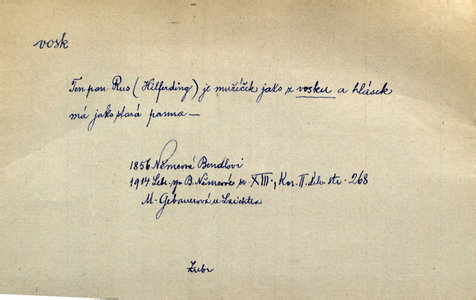 vosk
Ten pan Rus (Hilferding) je mužíček jako z vosku a hlásek
má jako stará panna —
1856 Němcová Bendlovi
1914 Sebr. sp. B. Němcové sv. XIII., Kor. II. díl. str. 268
M. Gebauerová u Laichtra
Zubr